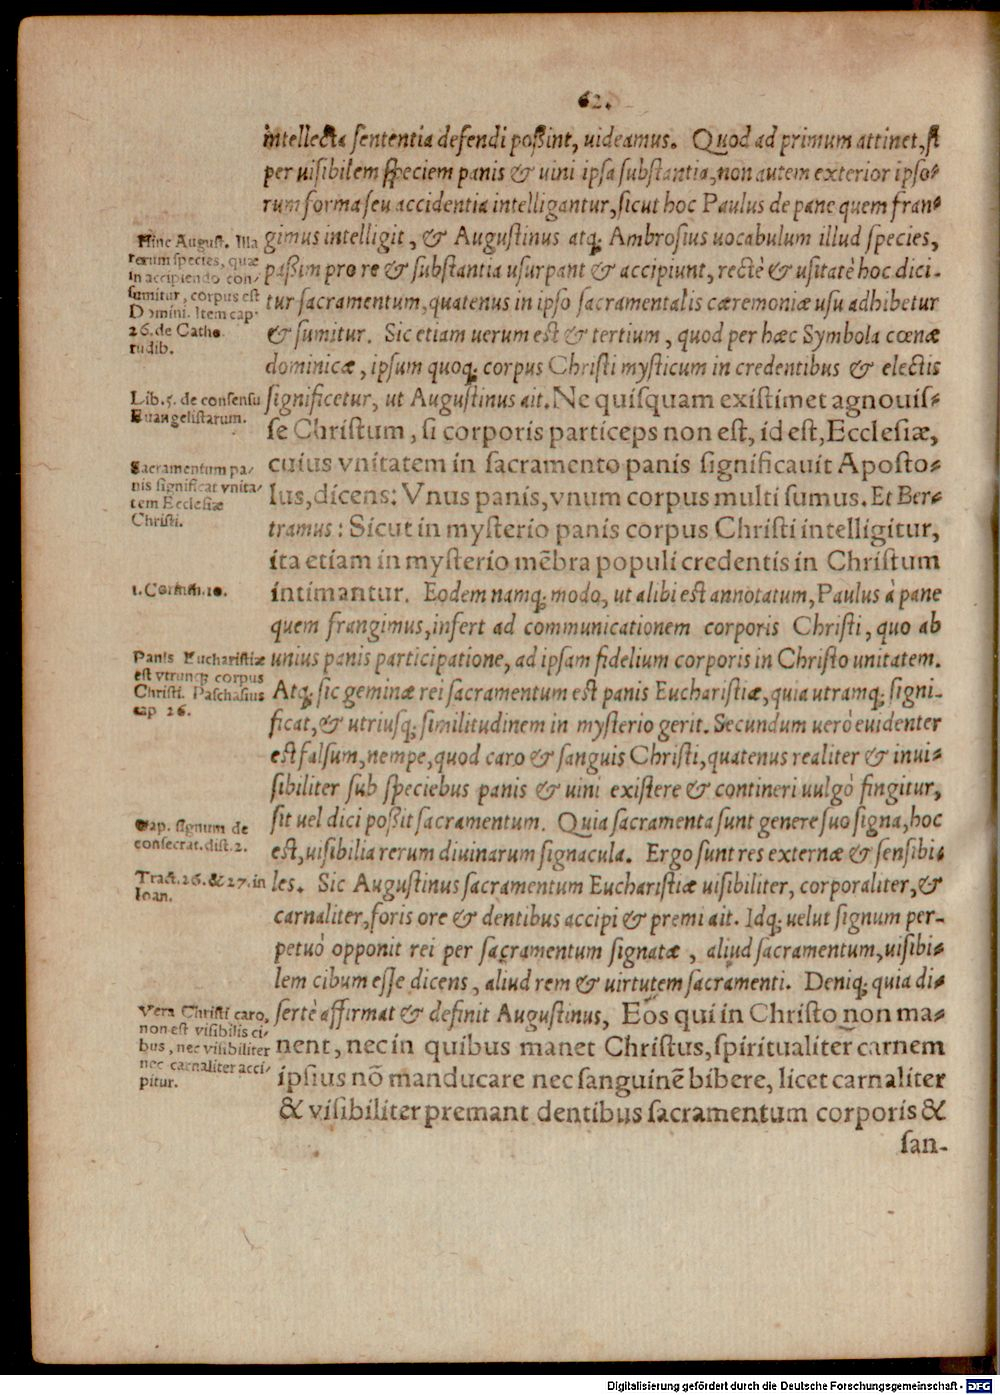 62.
intellecta sententia defendi poßint, uideamus. Quod ad primum attinet, si
per uisibilem speciem panis & uini ipsa substantia, non autem exterior ipso-
rum forma seu accidentia intelligantur, sicut hoc Paulus de pane quem fran-
gimus intelligit, & Augustinus atq; Ambrosius uocabulum illud species,
paßim pro re & substantia usurpant & accipiunt, rectè & usitatè hoc dici-
tur sacramentum, quatenus in ipso sacramentalis cæremoniæ usu adhibetur
& sumitur. Sic etiam uerum est & tertium, quod per hæc Symbola cœnæ
dominicæ, ipsum quoq; corpus Christi mysticum in credentibus & electis
significetur, ut Augustinus ait. Ne quisquam existimet agnouis-
se Christum, si corporis particeps non est, id est, Ecclesiæ,
cuius vnitatem in sacramento panis significauit Aposto-
lus, dicens: Vnus panis, vnum corpus multi sumus. Et Ber-
tramus: Sicut in mysterio panis corpus Christi intelligitur,
ita etiam in mysterio mẽbra populi credentis in Christum
intimantur. Eodem namq; modo, ut alibi est annotatum, Paulus à pane
quem frangimus, infert ad communicationem corporis Christi, quo ab
unius panis participatione, ad ipsam fidelium corporis in Christo unitatem.
Atq; sic geminæ rei sacramentum est panis Eucharistiæ, quia utramq; signi-
ficat, & utriusq; similitudinem in mysterio gerit. Secundum uerò euidenter
est falsum, nempe, quod caro & sanguis Christi, quatenus realiter & inui-
sibiliter sub speciebus panis & uini existere & contineri uulgò fingitur,
sit uel dici poßit sacramentum. Quia sacramenta sunt genere suo signa, hoc
est, uisibilia rerum diuinarum signacula. Ergo sunt res externæ & sensibi-
les. Sic Augustinus sacramentum Eucharistiæ uisibiliter, corporaliter, &
carnaliter, foris ore & dentibus accipi & premi ait. Idq; uelut signum per-
petuò opponit rei per sacramentum signatæ, aliud sacramentum, uisibi-
lem cibum esse dicens, aliud rem & uirtutem sacramenti. Deniq; quia di-
sertè affirmat & definit Augustinus, Eos qui in Christo non ma-
nent, nec in quibus manet Christus, spiritualiter carnem
ipsius nõ manducare nec sanguinẽ bibere, licet carnaliter
& visibiliter premant dentibus sacramentum corporis &
san-
Hinc August. Illa
rerum species, quæ
in accipiendo con-
sumitur, corpus est
Domini. Item cap.
26. de Catho.
rudib.
Lib. 5. de consensu
Euangelistarum.
Sacramentum pa-
nis significat vnita-
tem Ecclesiæ
Christi.
1. Corinth. 10.
Panis Eucharistiæ
est vtrunq; corpus
Christi. Paschasius
cap 26.
Cap. signum de
consecrat. dist. 2.
Tract. 26. & 27. in
Ioan.
Vera Christi caro,
non est visibilis ci-
bus, nec visibiliter
nec carnaliter acci-
pitur.
Digitalisierung gefördert durch die Deutsche Forschungsgemeinschaft - DFG